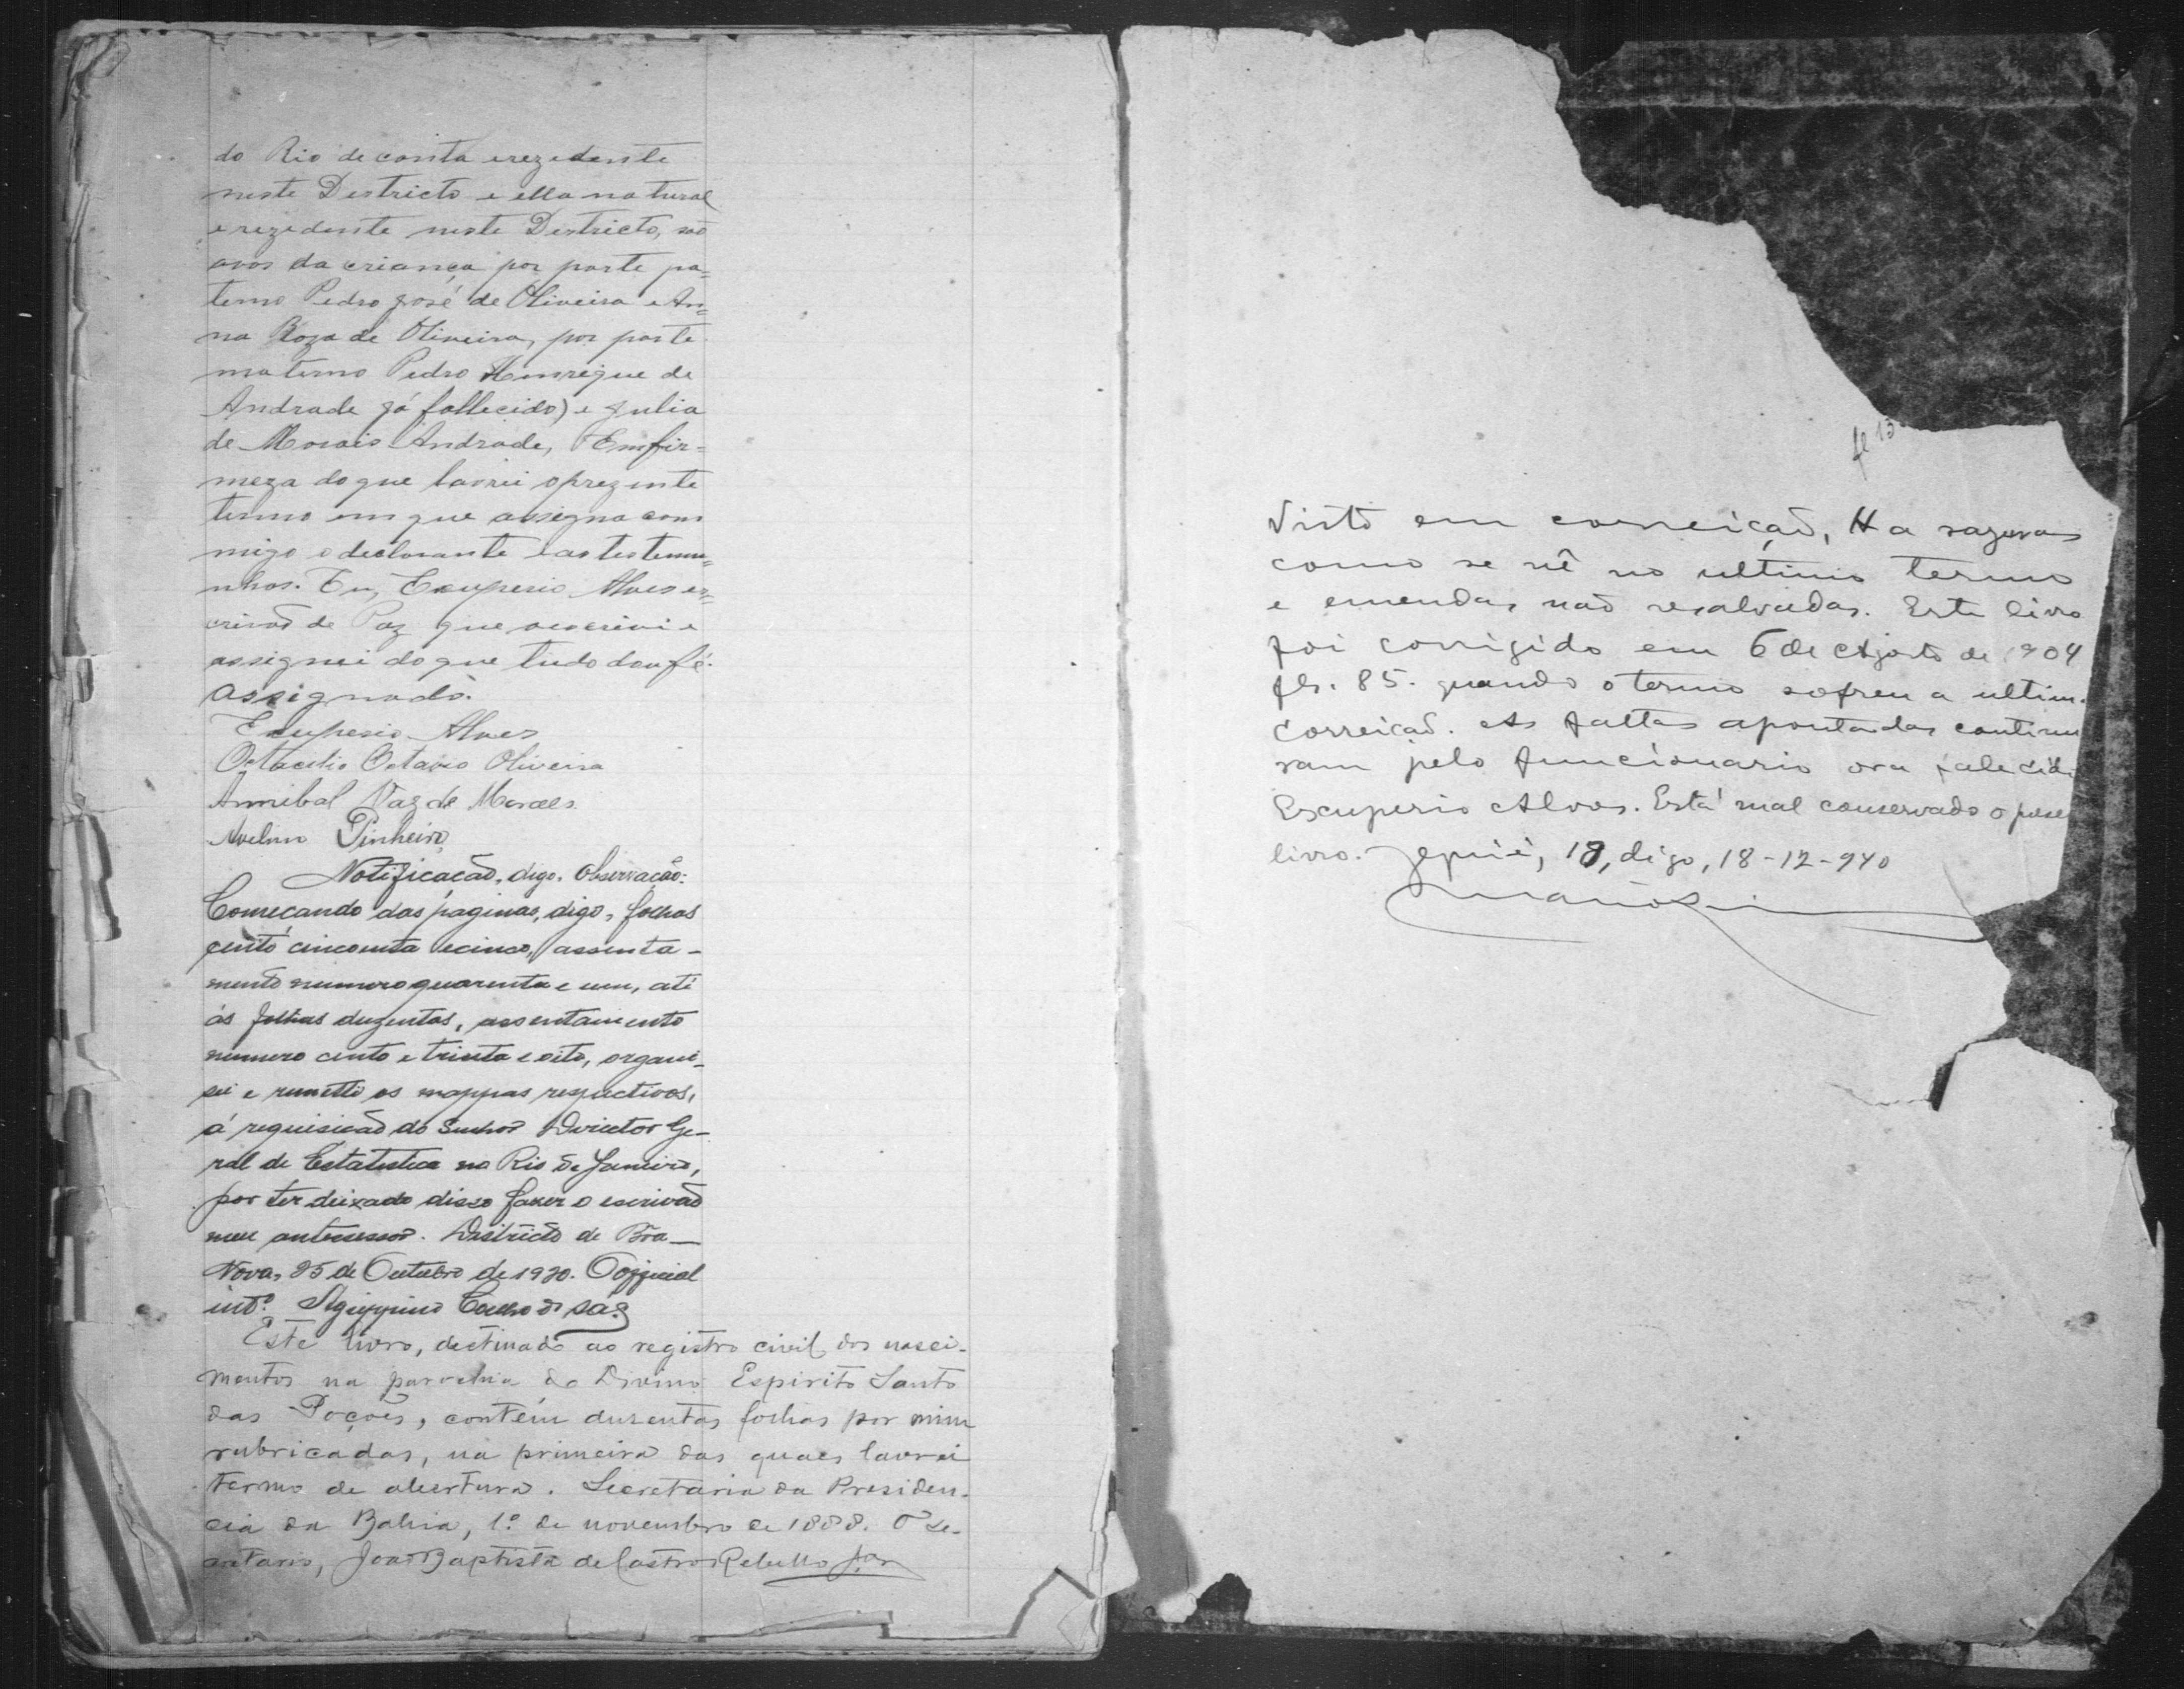 do Rio de conta erezedente
neste Destricto e ella natural
erezedente neste Destricto, são
avos da criança por parte pa=
terno Pedro José de Oliveira e An=
na Roza de Oliveira, por parte
materno Pedro Henrique de
Andrade já fallecido) e Julia
de Morais Andrade, Emfir=
meza do que lavrei o prezente
termo em que assigna com
migo o declarante e as testemu=
nhas. Eu, Exuperio Alves es=
crivão de Paz que o escrivi e
assignei do que tudo dou fé.
assignado.
Exuperio Alves
Octacilio Octavio Oliveira
Annibal Vaz de Moraes
Avelino Pinheiro
Notificação, digo, Observação:
Começando das paginas, digo, folhas
cento cincoenta ecinco, assenta-
mento numero quarenta e um, até
ás folhas duzentas, assentamento
numero cento e trinta e oito, organi-
sei e remetti os mappas respectivos,
á requisição do Senhor Director Ge-
ral de Estatistica no Rio de Janeiro,
por ter deixado disso fazer o escrivão
meu antecessor. Districto de Bôa-
Nova, 25 de Outubro de 1920. O official
intº. Agrippino Coelho de Sá.
Este livro, destinado ao registro civil dos nasci-
mentos na parochia do Divino Espirito Santo
das Poções, contém duzentas folhas por mim
rubricadas, na primeira das quaes lavrei
termo de abertura. Secretaria da Presiden-
cia da Bahia, 1º de novembro de 1888. O Se-
cretario, João Baptista de Castro Rebello Jor
fl 13
Visto em correição, Ha razuras
como se vê no ultimo termo
e emendas não resalvadas. Este livro
foi corrigido em 6 de Agosto de 1904
fls. 85. quando o termo sofreu a ultim
correição. As faltas apontadas continu
ram pelo funcionario ora falecid
Escuperio Alves. Está mal conservado o prese
livro. Jequié, 19, digo, 18-12-940